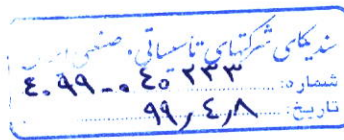 سندیکای شرکتهای تاسیساتی و صنعتی
شماره: ٤٠٩٩-٠٤٥٢٣٣
تاریخ: ٩٩٫٤٫٨